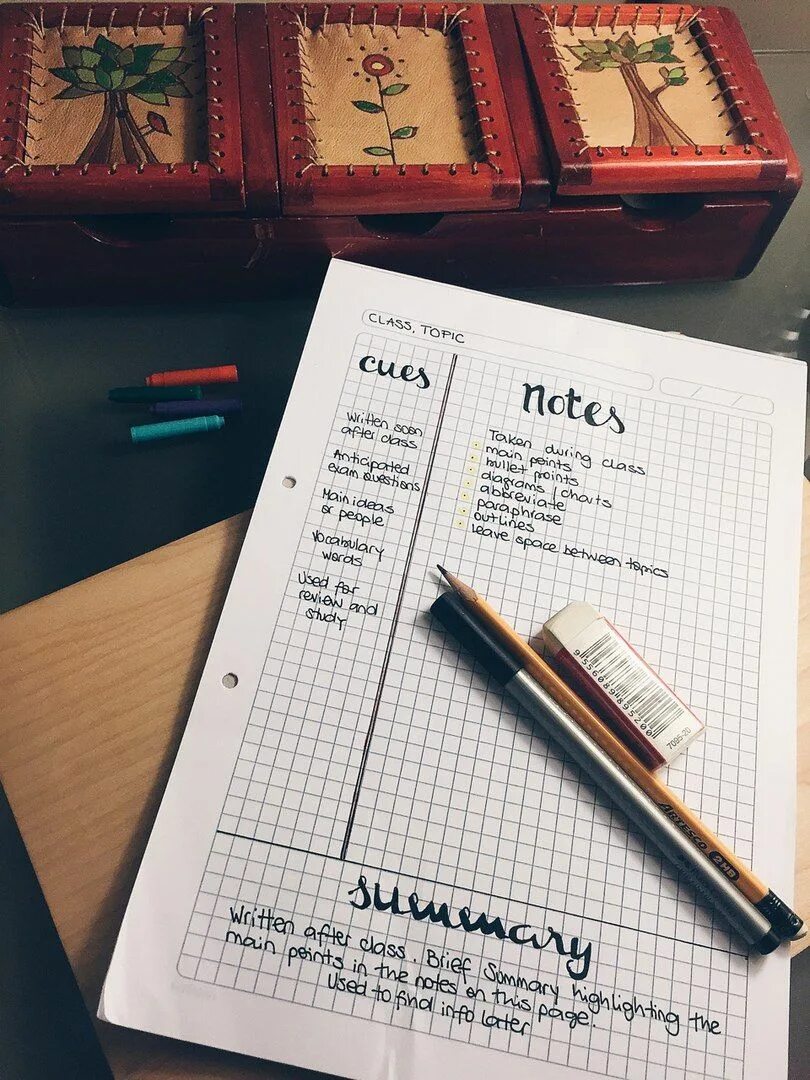 CLASS, TOPIC
cues
Written soon
after class
Anticipated
exam questions
Main ideas
or people
Vocabulary
words
Used for
review and
study
Notes
Taken during class
main points
bullet points
diagrams / charts
abbreviate
paraphrase
outlines
leave space between topics
9556089895200
7095-20
ARTESCO 2HB
summary
Written after class. Brief Summary highlighting the
main points in the notes on this page.
Used to find info later